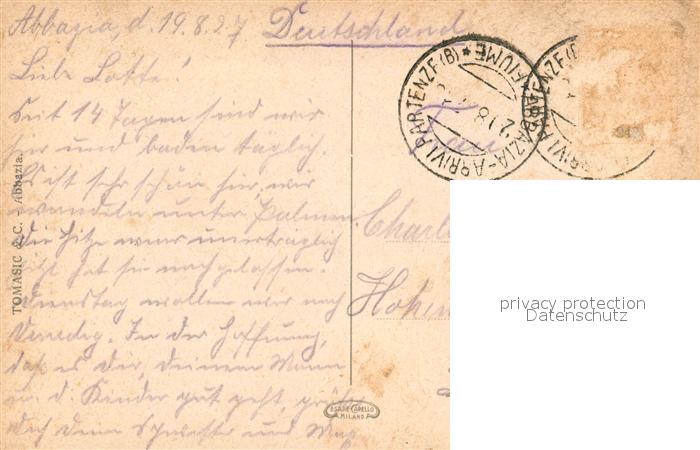 Abbazia, d. 19.8.27 Deutschland
Liebe Lotte!
Seit 14 Tagen sind wir
hier und baden täglich.
Es ist sehr schön hier, wir
wandeln unter Palmen.
Die Hitze war unerträglich
jetzt hat sie nachgelassen.
Dienstag wollen wir nach
Venedig. In der Hoffnung,
daß es dir, deinem Mann
u. d. Kinder gut geht, grüßt
dich deine Schwester und
TOMASIC & C. - Abbazia.
ARRIVI PARTENZE (B) * FIUME
ABBAZIA-ARRIVI
Frau
Charl
Hohen
CESARE CAPELLO
MILANO
privacy protection
Datenschutz